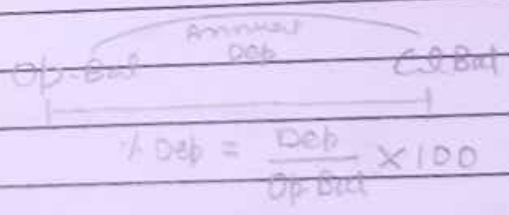 Annual
Op-Bal Dep Cl Bal
% Dep = Dep / Op Bal × 100